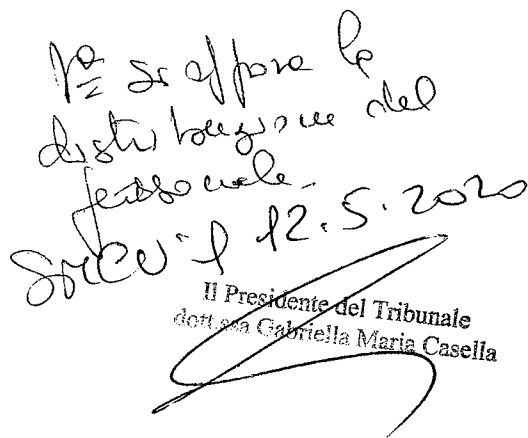 Vº si approva la
distribuzione del
personale.
SMCV lì 12.5.2020
Il Presidente del Tribunale
dott.ssa Gabriella Maria Casella